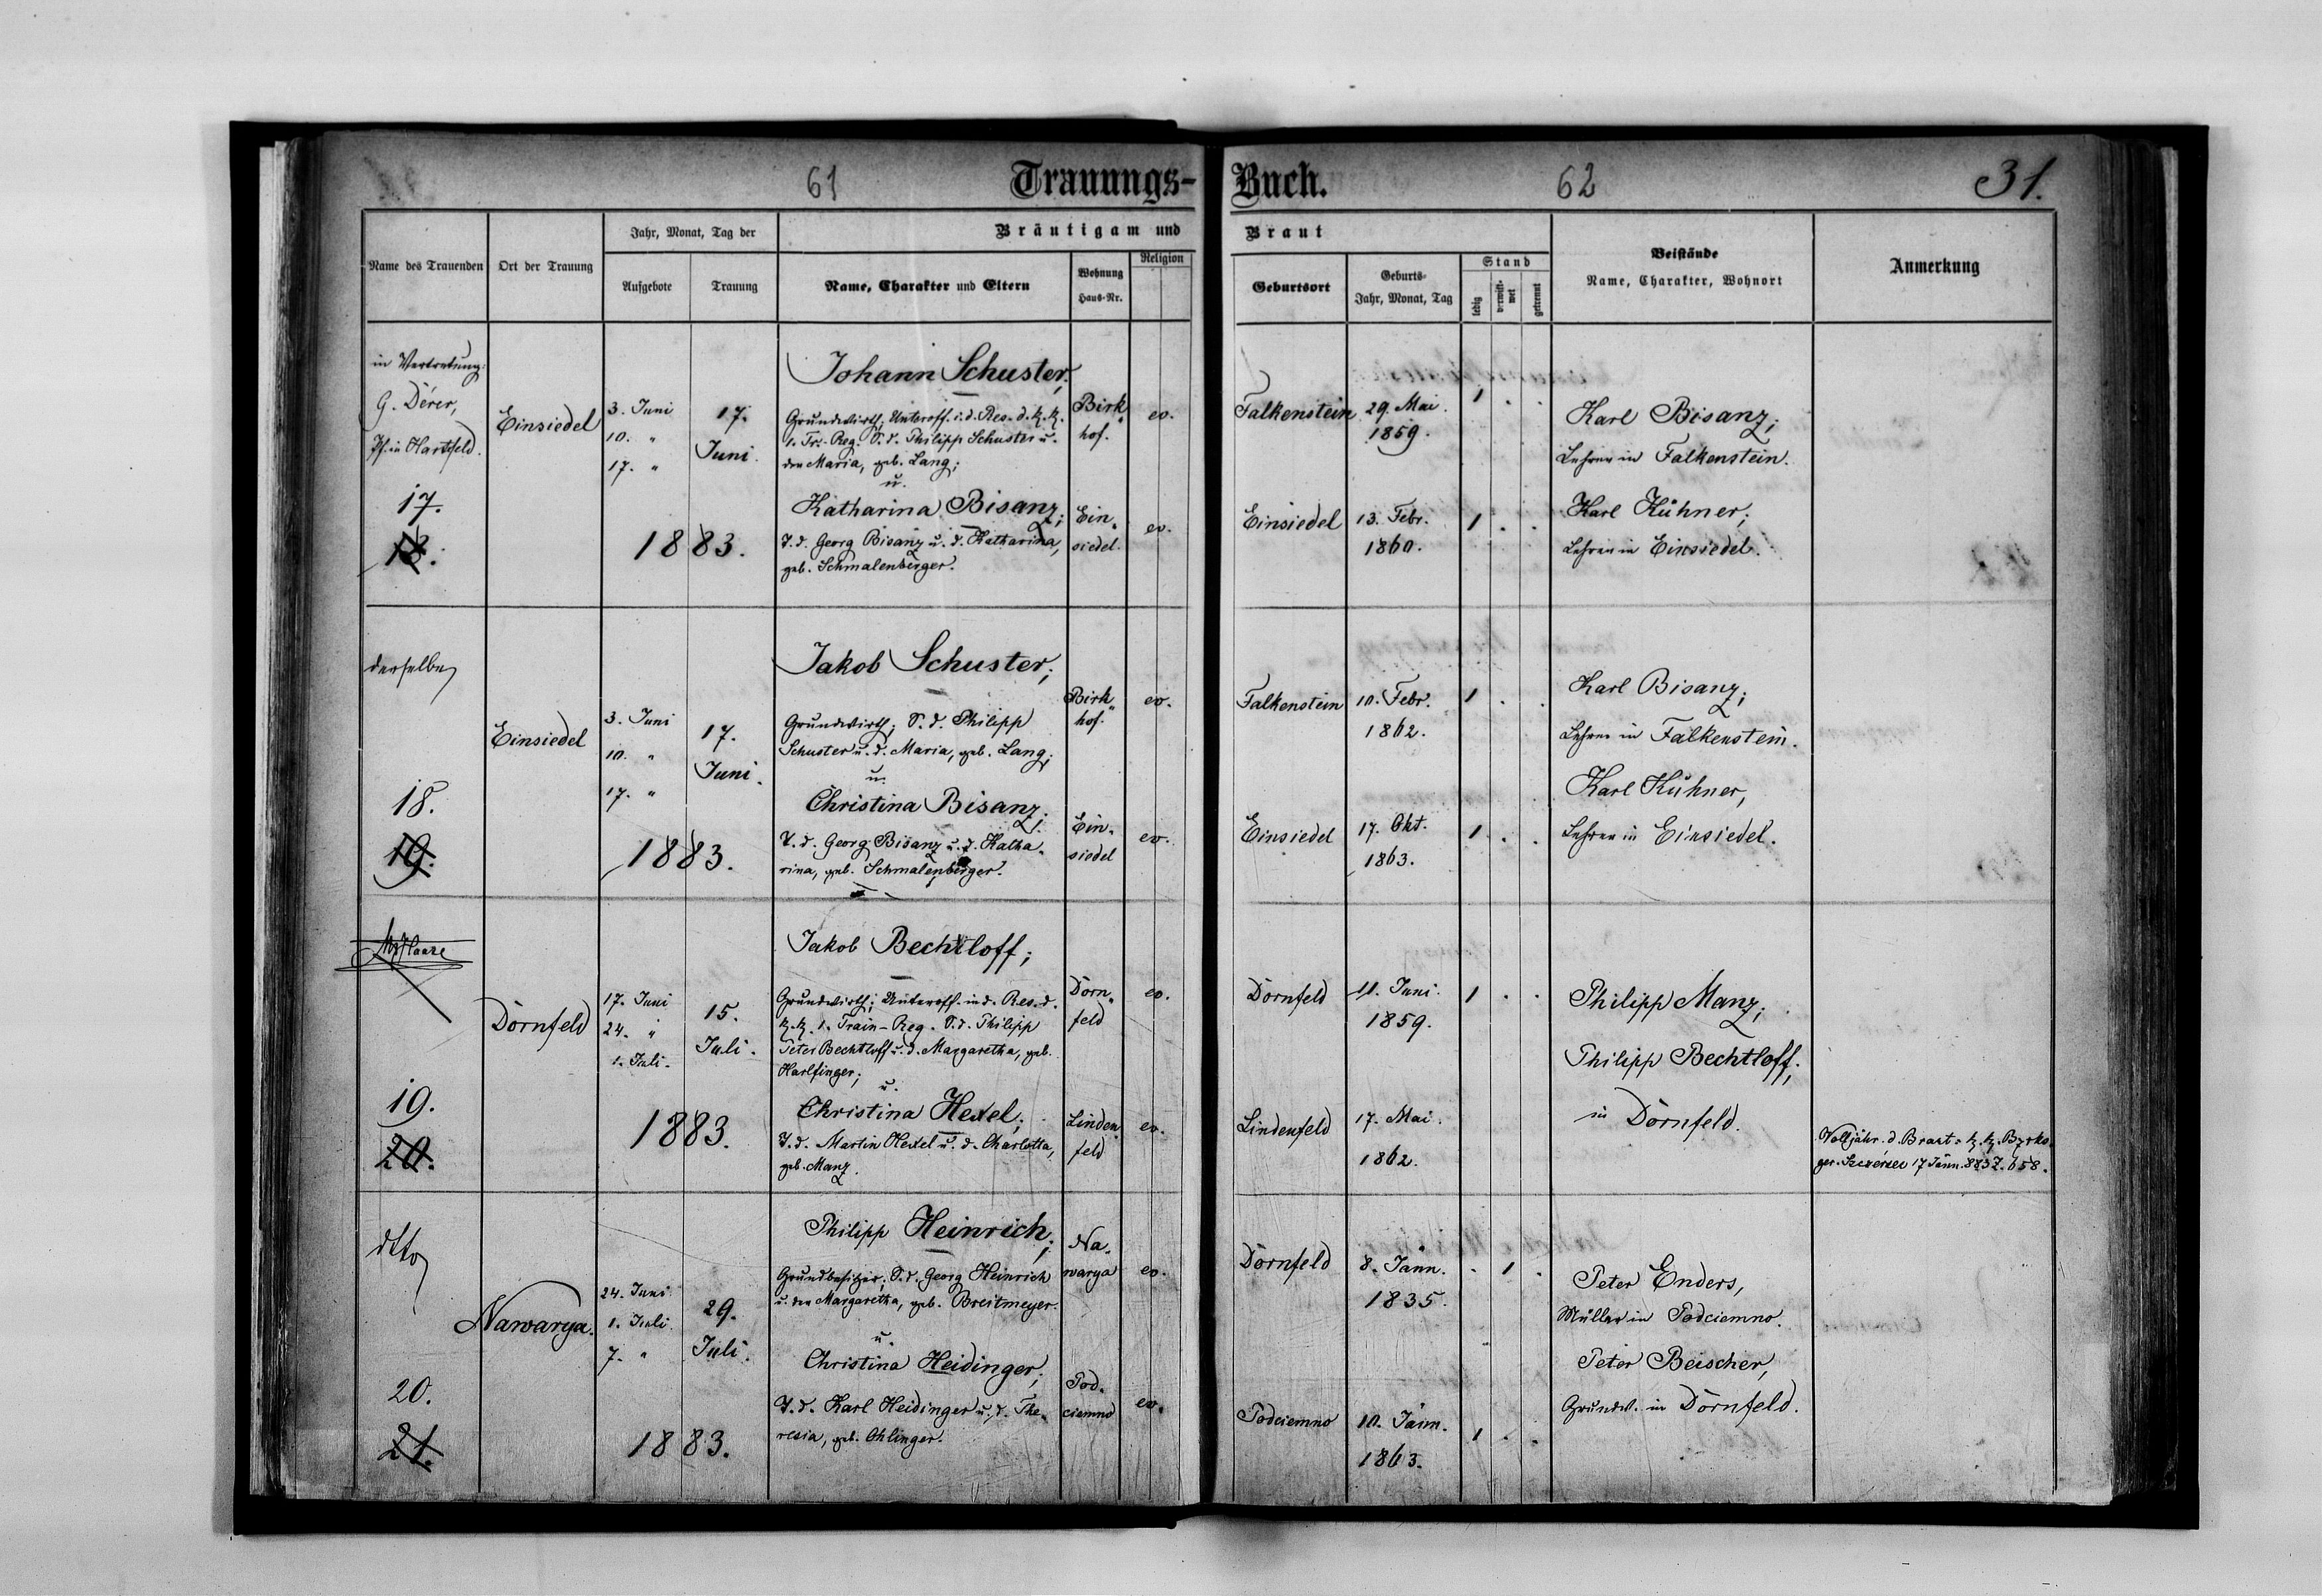 61 Trauungs-
Buch. 62 31.
Name des Trauenden
Ort der Trauung
Jahr, Monat, Tag der
Aufgebote
Trauung
Bräutigam und
Name, Charakter und Eltern
Wohnung
Haus-Nr.
Religion
Braut
Geburtsort
Geburts-
Jahr, Monat, Tag
Stand
ledig
verwitt-
wet
getrennt
Beistände
Name, Charakter, Wohnort
Anmerkung
in Vertretung:
G. Dérer,
Pf. in Hartfeld.
17.
18.
Einsiedel
3. Juni
10. "
17. "
17.
Juni.
1883.
Johann Schuster;
Grundwirth; Unteroff. i. d. Res. d. k. k.
1. Tr.-Reg. S. d. Philipp Schuster u.
der Maria, geb. Lang;
u.
Katharina Bisanz;
T. d. Georg Bisanz u. d. Katharina,
geb. Schmalenberger.
Birk„
hof.
Ein„
siedel.
ev.
ev.
Falkenstein
29. Mai.
1859.
1 . .
Einsiedel
13. Febr.
1860.
1 . .
Karl Bisanz;
Lehrer in Falkenstein.
Karl Kühner;
Lehrer in Einsiedel.
derselbe
18.
19.
Einsiedel
3. Juni
10. "
17. "
17.
Juni.
1883.
Jakob Schuster;
Grundwirth; S. d. Philipp
Schuster u. d. Maria, geb. Lang;
u.
Christina Bisanz;
T. d. Georg Bisanz u. d. Katha„
rina, geb. Schmalenberger.
Birk„
hof.
Ein„
siedel
ev.
ev.
Falkenstein
10. Febr.
1862.
1 . .
Einsiedel
17. Okt.
1863.
1 . .
Karl Bisanz;
Lehrer in Falkenstein.
Karl Kühner,
Lehrer in Einsiedel.
19.
20.
Dornfeld
17. Juni
24. "
1. Juli.
15.
Juli.
1883.
Jakob Bechtloff;
Grundwirth; Unteroff. in d. Res. d.
k. k. 1. Train-Reg. S. d. Philipp
Peter Bechtloff u. d. Margaretha, geb.
Harlfinger;
u.
Christina Hexel;
T. d. Martin Hexel u. d. Charlotta,
geb. Manz.
Dorn„
feld
Linden„
feld
ev.
ev.
Dornfeld
11. Juni.
1859.
1 . .
Lindenfeld
17. Mai.
1862.
Philipp Manz;
Philipp Bechtloff;
in Dornfeld.
Volljähr. d. Braut: k. k. Bzrks
ger. Szczerzec 17 Jänn. 883 Z. 658.
dtto
20.
21.
Nawarya.
24. Juni.
1. Juli.
7. "
29.
Juli.
1883.
Philipp Heinrich;
Grundbesitzer; S. d. Georg Heinrich
u. der Margaretha, geb. Breitmeyer.
u.
Christina Heidinger;
T. d. Karl Heidinger u. d. The„
resia, geb. Ohlinger.
Na„
warya
Pod„
ciemno
ev.
ev.
Dornfeld
8. Jänn.
1835.
. 1 .
Podciemno
10. Jänn.
1863.
1 . .
Peter Enders,
Müller in Podciemno.
Peter Beischer,
Grundw. in Dornfeld.